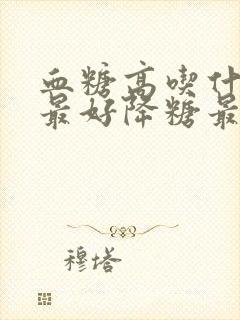 血糖高喫什
最好降糖最
穆塔